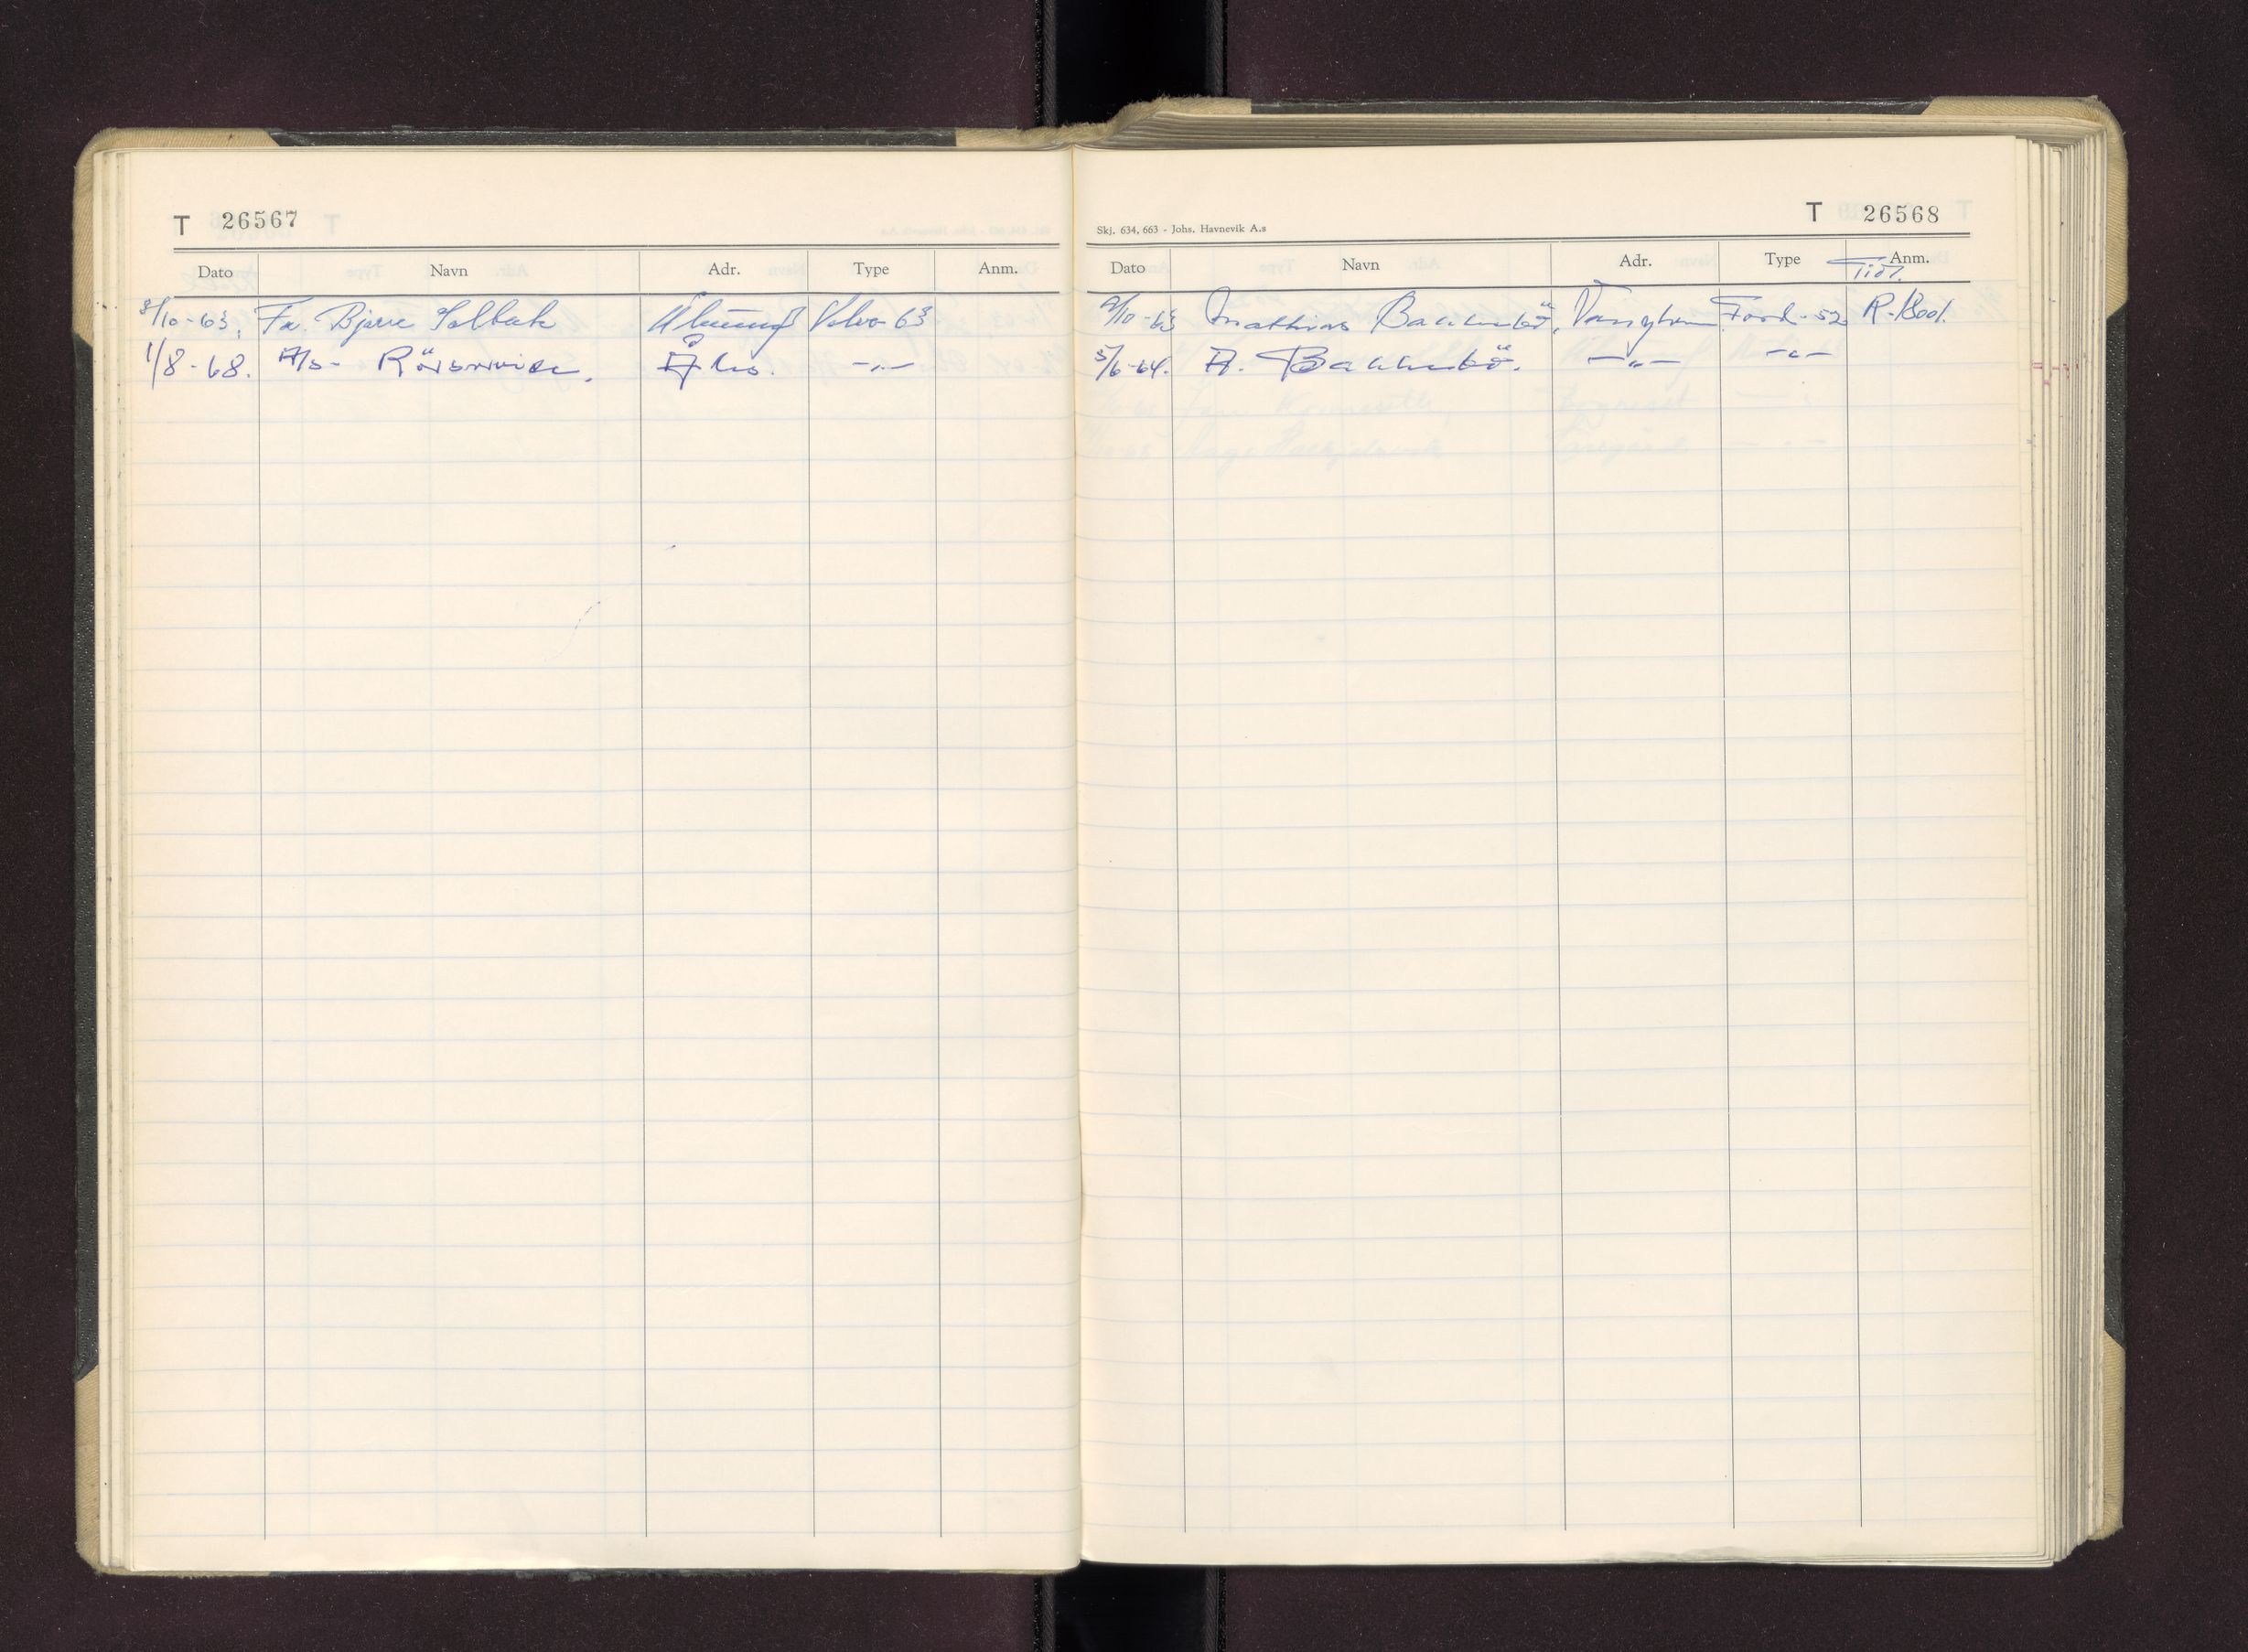 T 26567
Dato Navn Adr. Type Anm.
3/10-63. Fa. Bjarne Solbakk Volvo 63
1/8-68. A/S -"-
T 26568
Skj. 634, 663 - Johs. Havnevik A.s
Dato Navn Adr. Type Anm.
Tidl.
9/10-63 Mathias Ford-52 R-1800
5/6-64. A. -"- -"-